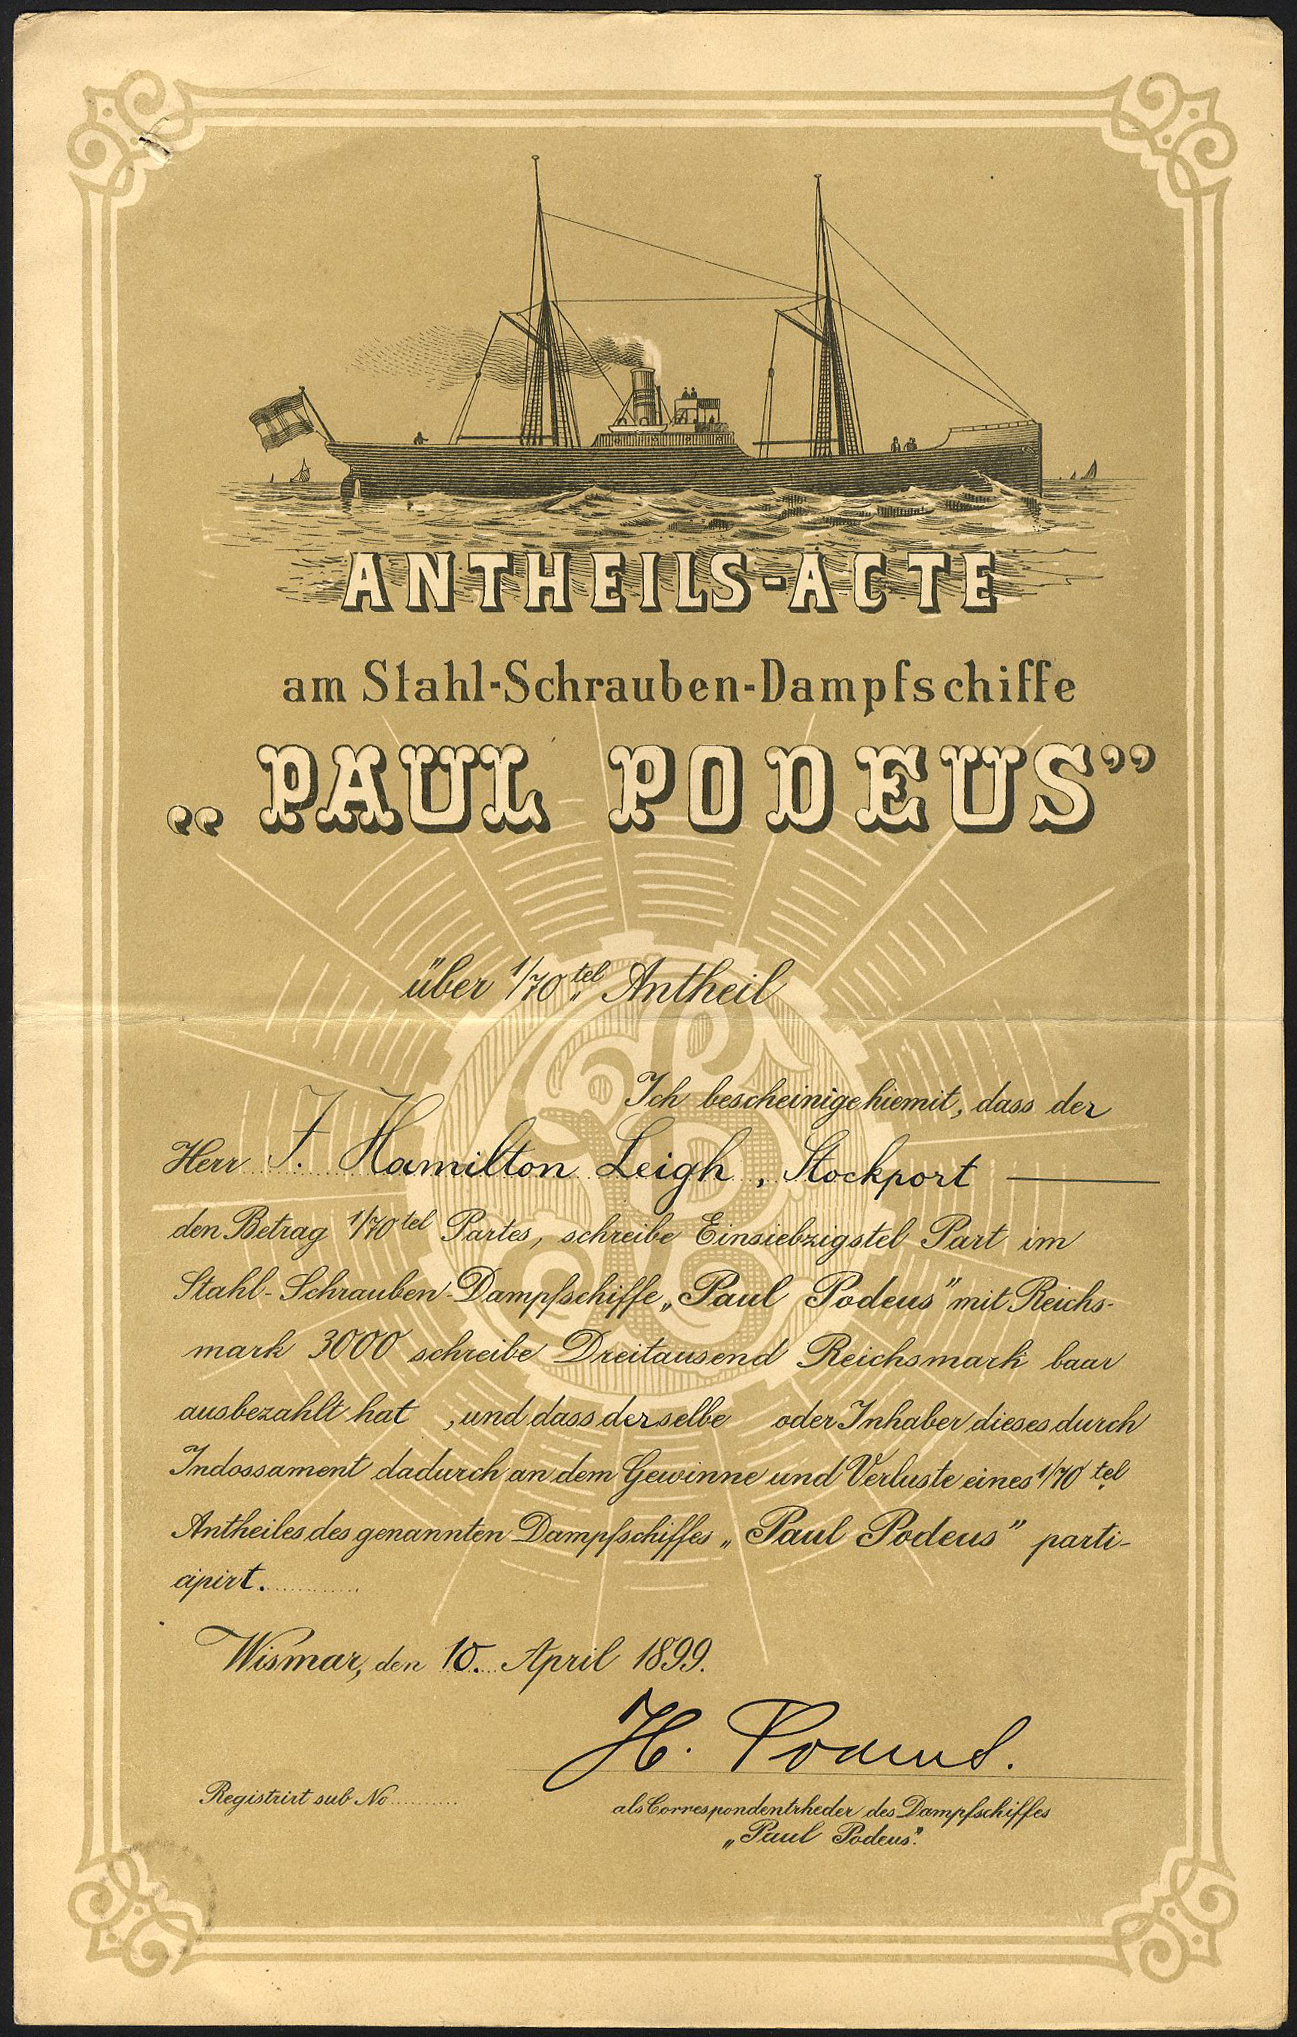 ANTHEILS-ACTE
am Stahl-Schrauben-Dampfschiffe
„PAUL PODEUS”
über 1/70 tel Antheil
Ich bescheinige hiemit, dass der
Herr J. Hamilton Leigh, Stockport
den Betrag 1/70 tel Partes, schreibe Einsiebzigstel Part im
Stahl-Schrauben-Dampfschiffe „Paul Podeus” mit Reichs-
mark 3000 schreibe Dreitausend Reichsmark baar
ausbezahlt hat, und dass derselbe oder Inhaber dieses durch
Indossament dadurch an dem Gewinne und Verluste eines 1/70 tel
Antheiles des genannten Dampfschiffes „Paul Podeus” parti-
cipirt.
Wismar, den 10. April 1899.
H. Podeus.
Registrirt sub No
als Correspondentrheder des Dampfschiffes
„Paul Podeus”.